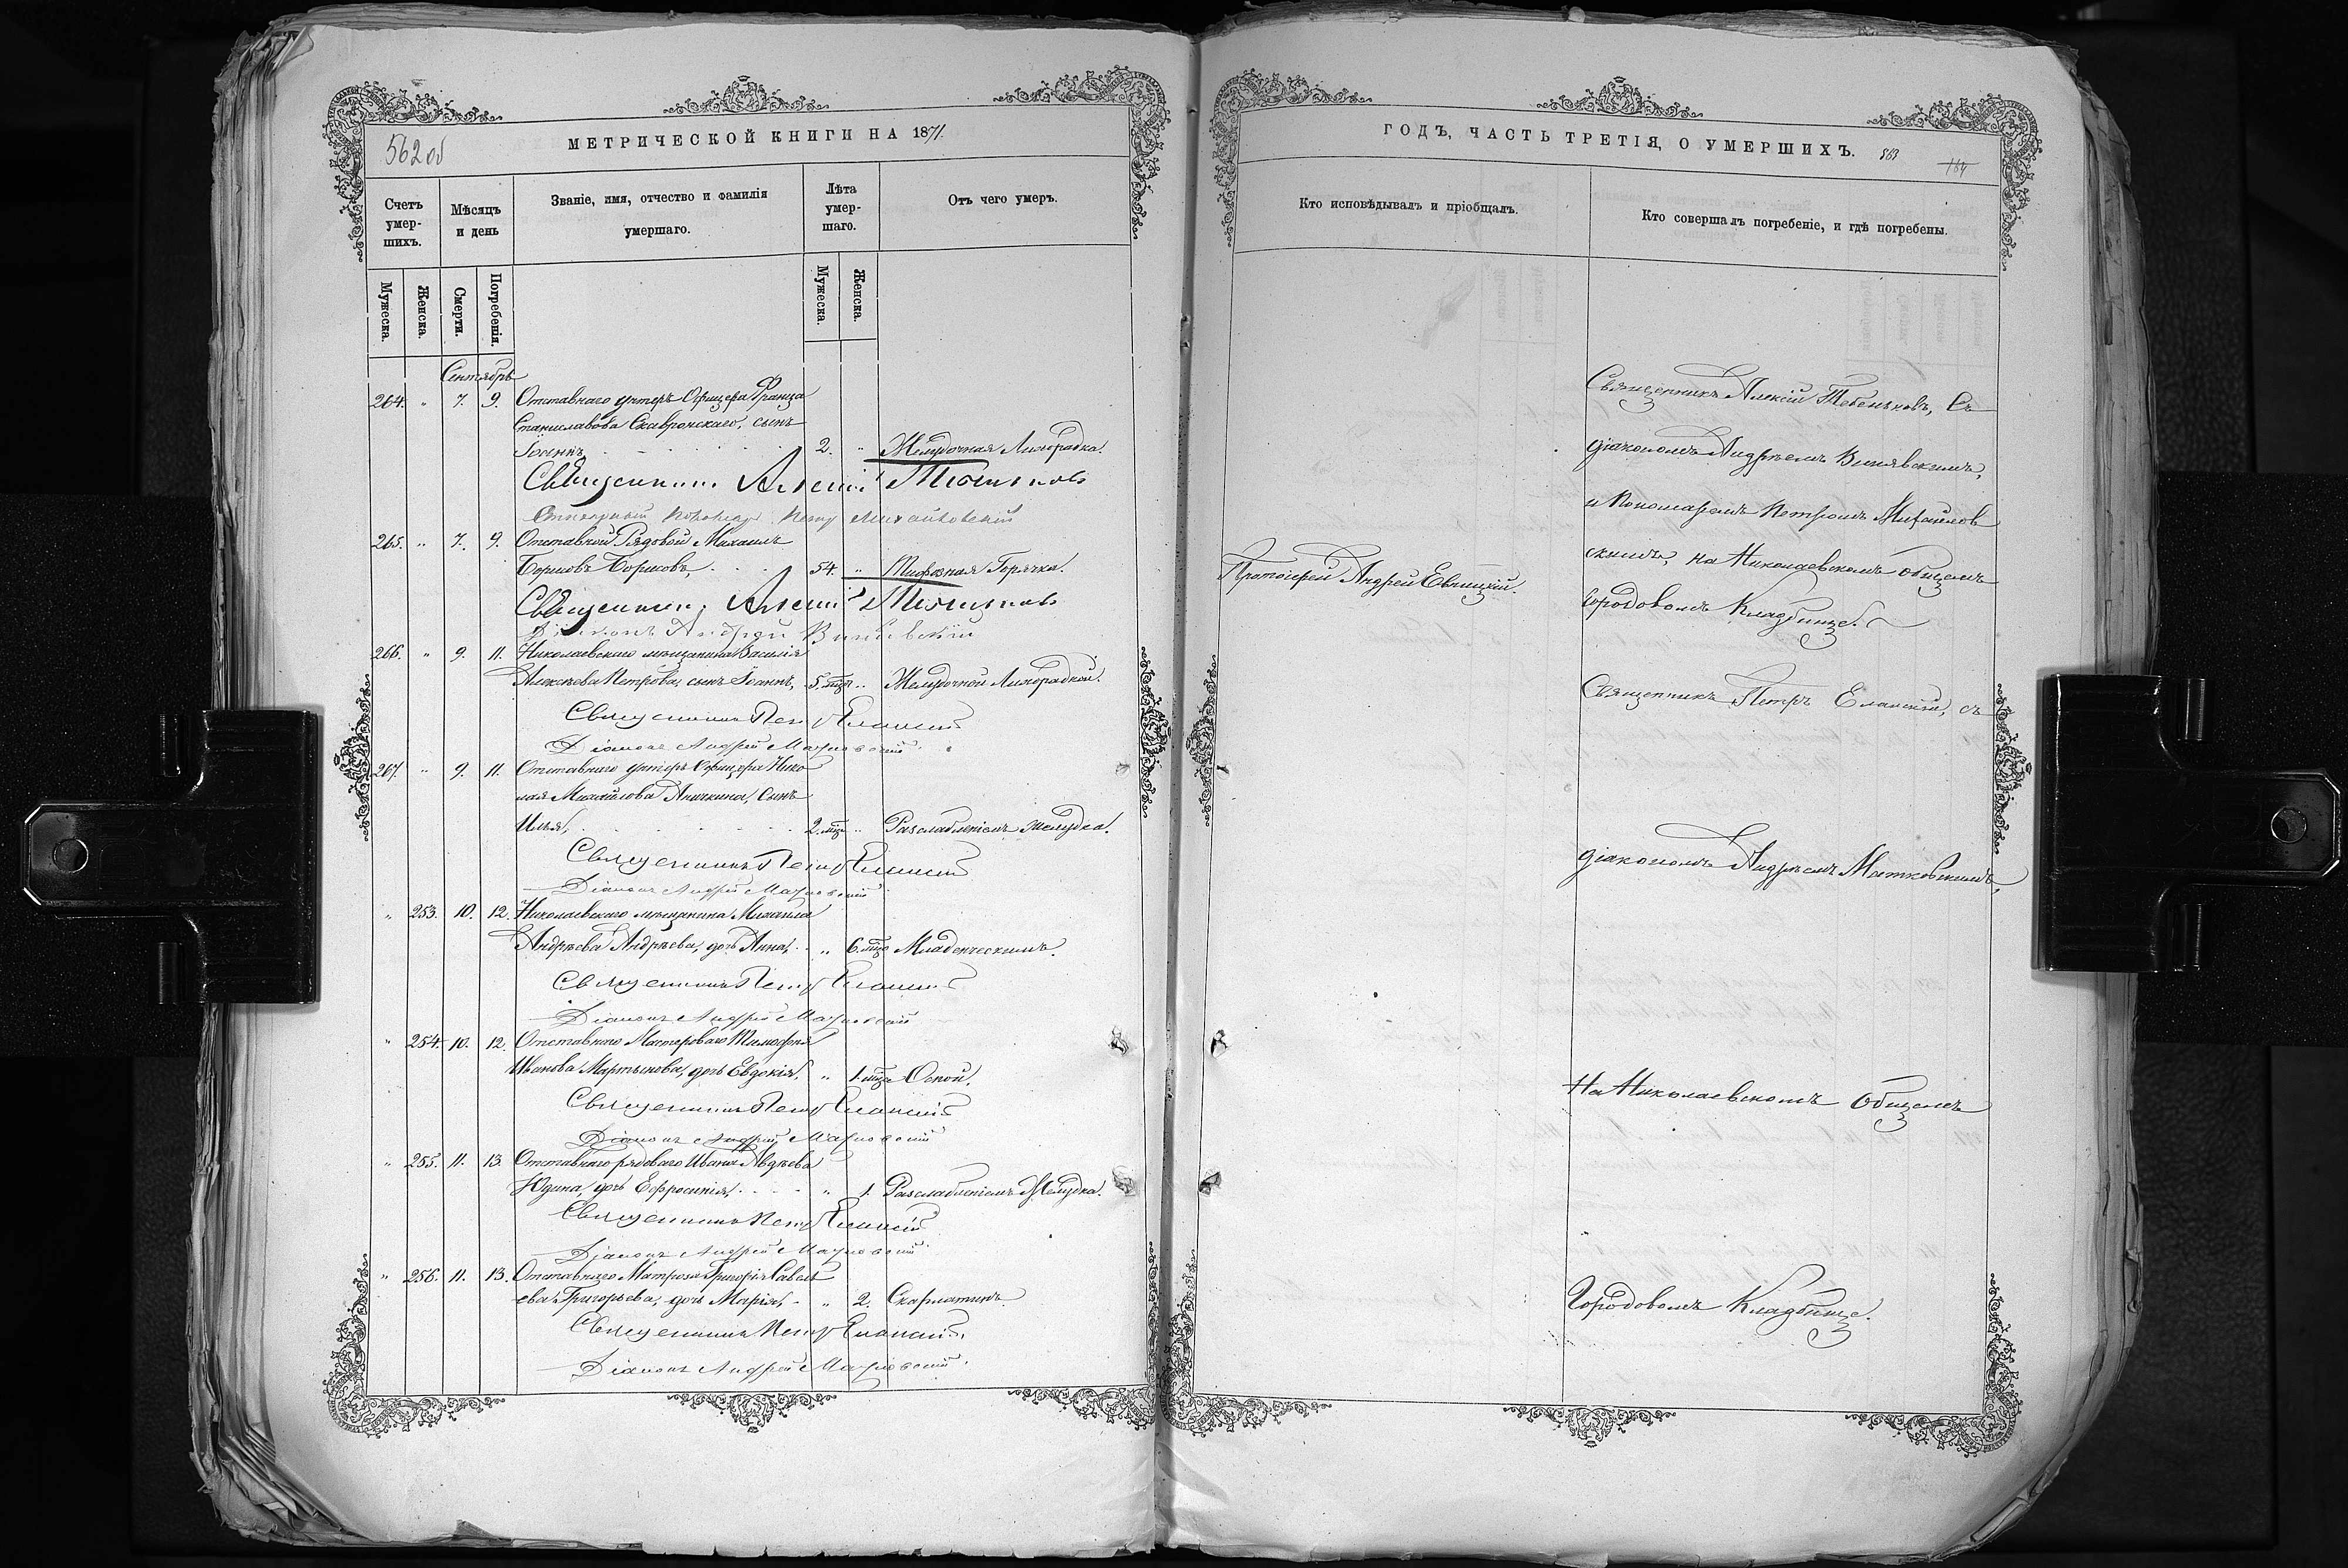 562 об
МЕТРИЧЕСКОЙ КНИГИ НА 1871.
Счетъ умер-шихъ.
Мѣсяцъ и день
Званіе, имя, отчество и фамилія умершаго.
Лѣта умер-шаго.
Отъ чего умеръ.
Мужеска. Женска. Смерти. Погребенія. Мужеска. Женска.
Сентябрь
264. " 7. 9. Отставнаго унтеръ Офицера Франца
Станиславова Скавронскаго, сынъ
Іоаннъ 2. " Желудочная Лихорадка.
Священникъ Алексій
Пономарь Петръ Михайловскій
265. " 7. 9. Отставной Рядовой Михаилъ
Борисовъ Борисовъ, 54. " Тифозная Горячка.
Священникъ Алексій
Діаконъ Андрей
266. " 9. 11. Николаевскаго мѣщанина Василія
Алексѣева Петрова, сынъ Іоаннъ, 5. мѣс " Желудочной Лихорадкой.
Священникъ Петръ Еланскій
Діаконъ Андрей Матковскій
267. " 9. 11. Отставнаго унтеръ Офицера Нико
лая Михайлова Аничкина, Сынъ
Илья, 2. мѣс " Разслабленіемъ желудка.
Священникъ Петръ Еланскій
Діаконъ Андрей Матковскій
" 253. 10. 12. Николаевскаго мѣщанина Михаила
Андрѣева Андрѣева, дочь Анна, " 6. мѣс Младенческимъ.
Священникъ Петръ Еланскій
Діаконъ Андрей Матковскій
" 254. 10. 12. Отставнаго Мастероваго Тимофея
Иванова Мартынова, дочь Евдокія, " 1. мѣс Оспой.
Священникъ Петръ Еланскій
Діаконъ Андрей Матковскій
" 255. 11. 13. Отставнаго рядоваго Ивана Авдѣева
Юдина, дочь Ефросинія, " 1. Разслабленіемъ Желудка.
Священникъ Петръ Еланскій
Діаконъ Андрей Матковскій
" 256. 11. 13. Отставнаго Матроса Григорія Савель
ева Григорьева, дочь Марія, " 2. Скарлатинъ.
Священникъ Петръ Еланскій
Діаконъ Андрей Матковскій
ГОДЪ, ЧАСТЬ ТРЕТІЯ, О УМЕРШИХЪ. 563
184
Кто исповѣдывалъ и пріобщалъ.
Кто совершалъ погребеніе, и гдѣ погребены.
Протоіерей Андрей
Священникъ Алексій Тебеньковъ, Съ
діакономъ Андрѣемъ
и Пономаремъ Петромъ Михайлов
скимъ, на Николаевскомъ общемъ
городовомъ Кладбище.
Священникъ Петръ Еланскій, съ
діакономъ Андрѣемъ Матковскимъ,
На Николаевскомъ Общемъ
Городовомъ Кладбище.